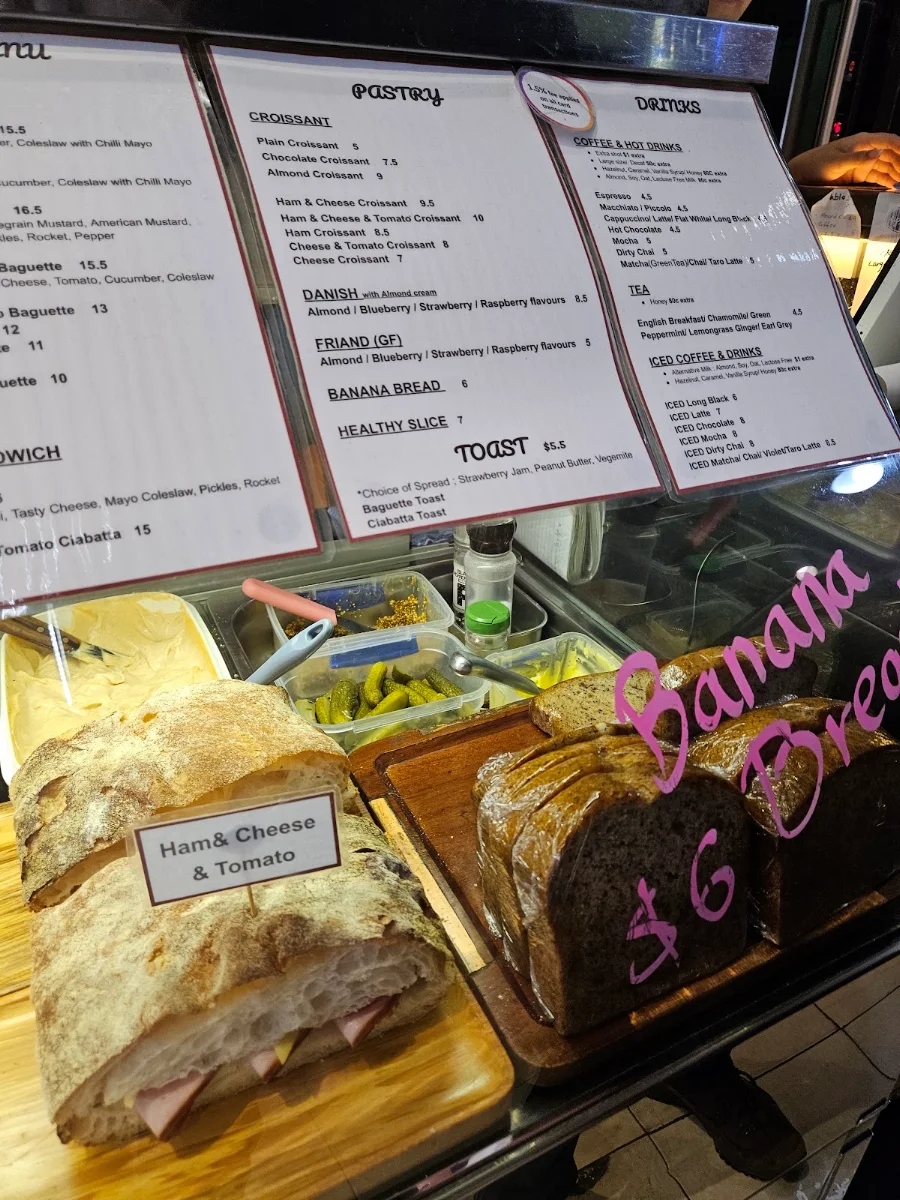 nu
15.5
er, Coleslaw with Chilli Mayo
ucumber, Coleslaw with Chilli Mayo
16.5
egrain Mustard, American Mustard,
kles, Rocket, Pepper
Baguette 15.5
Cheese, Tomato, Cucumber, Coleslaw
o Baguette 13
12
te 11
uette 10
DWICH
i, Tasty Cheese, Mayo Coleslaw, Pickles, Rocket
Tomato Ciabatta 15
PASTRY
CROISSANT
Plain Croissant 5
Chocolate Croissant 7.5
Almond Croissant 9
Ham & Cheese Croissant 9.5
Ham & Cheese & Tomato Croissant 10
Ham Croissant 8.5
Cheese & Tomato Croissant 8
Cheese Croissant 7
DANISH with Almond cream
Almond / Blueberry / Strawberry / Raspberry flavours 8.5
FRIAND (GF)
Almond / Blueberry / Strawberry / Raspberry flavours 5
BANANA BREAD 6
HEALTHY SLICE 7
TOAST $5.5
*Choice of Spread ; Strawberry Jam, Peanut Butter, Vegemite
Baguette Toast
Ciabatta Toast
1.5% fee applies
on all card
transactions
DRINKS
COFFEE & HOT DRINKS
• Extra shot $1 extra
• Large size/ Decaf 50c extra
• Hazelnut, Caramel, Vanilla Syrup/ Honey 80C extra
• Almond, Soy, Oat, Lactose Free Milk 80c extra
Espresso 4.5
Macchiato / Piccolo 4.5
Cappuccino/ Latte/ Flat White/ Long Black
Hot Chocolate 4.5
Mocha 5
Dirty Chai 5
Matcha(GreenTea)/Chai/ Taro Latte 5
TEA
• Honey 80c extra
English Breakfast/ Chamomile/ Green 4.5
Peppermint/ Lemongrass Ginger/ Earl Grey
ICED COFFEE & DRINKS
• Alternative Milk : Almond, Soy, Oat, Lactose Free $1 extra
• Hazelnut, Caramel, Vanilla Syrup/ Honey 80c extra
ICED Long Black 6
ICED Latte 7
ICED Chocolate 8
ICED Mocha 8
ICED Dirty Chai 8
ICED Matcha/ Chai/ Violet/Taro Latte 8.5
Banana
Brea
$6
Ham& Cheese
& Tomato